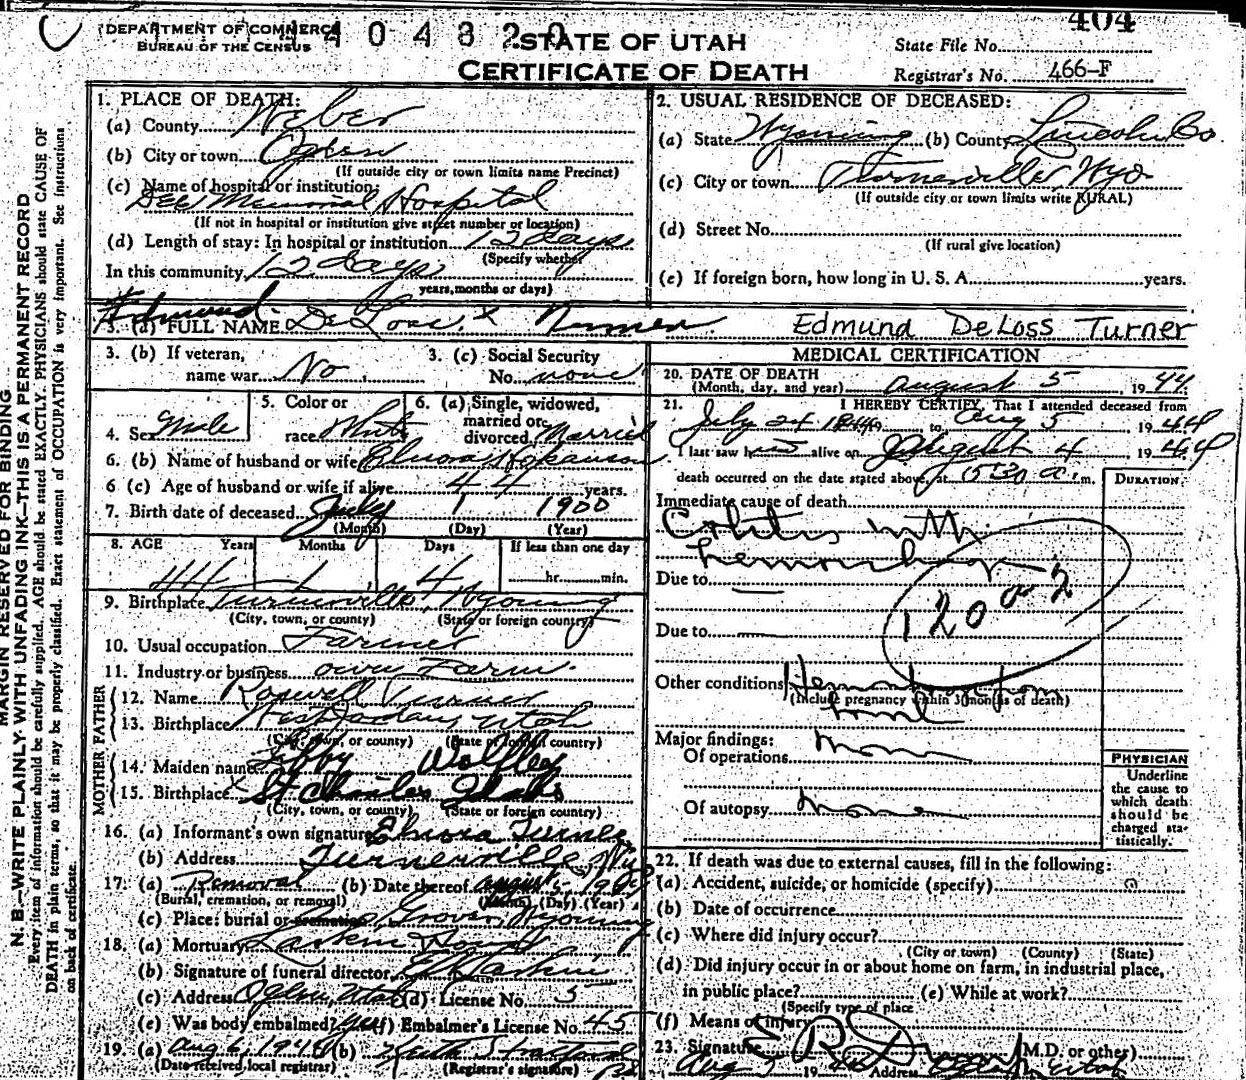 404
DEPARTMENT OF COMMERCE
BUREAU OF THE CENSUS
4 0 4 8 2 0
STATE OF UTAH
CERTIFICATE OF DEATH
State File No.
Registrar's No. 466-F
MARGIN RESERVED FOR BINDING
N. B.—WRITE PLAINLY WITH UNFADING INK—THIS IS A PERMANENT RECORD
Every item of information should be carefully supplied. AGE should be stated EXACTLY. PHYSICIANS should state CAUSE OF
DEATH in plain terms, so that it may be properly classified. Exact statement of OCCUPATION is very important. See instructions
on back of certificate.
1. PLACE OF DEATH:
(a) County Weber
(b) City or town Ogden
(If outside city or town limits name Precinct)
(c) Name of hospital or institution:
Dee Memorial Hospital
(If not in hospital or institution give street number or location)
(d) Length of stay: In hospital or institution 12 days
(Specify whether
In this community 12 days
years, months or days)
2. USUAL RESIDENCE OF DECEASED:
(a) State Wyoming (b) County Lincoln Co
(c) City or town Turnerville, Wyo
(If outside city or town limits write RURAL)
(d) Street No.
(If rural give location)
(e) If foreign born, how long in U. S. A. years.
3. (a) FULL NAME Edmund DeLoss Turner Edmund DeLoss Turner
3. (b) If veteran,
name war No
3. (c) Social Security
No. none
4. Sex Male
5. Color or
race White
6. (a) Single, widowed,
married or
divorced Married
6. (b) Name of husband or wife Elnora
6 (c) Age of husband or wife if alive 44 years.
7. Birth date of deceased July 1 1900
(Month) (Day) (Year)
8. AGE Years Months Days If less than one day
44 1 4 hr. min.
9. Birthplace Turnerville, Wyoming
(City, town, or county) (State or foreign country)
10. Usual occupation Farmer
11. Industry or business own Farm.
FATHER
12. Name Roswell Turner
13. Birthplace West Jordan, Utah
(City, town, or county) (State or foreign country)
MOTHER
14. Maiden name Libby Wolfley
15. Birthplace St Charles Idaho
(City, town, or county) (State or foreign country)
16. (a) Informant's own signature Elnora Turner
(b) Address Turnerville, Wyo
17. (a) Removal (b) Date thereof August 5 19
(Burial, cremation, or removal) (Month) (Day) (Year)
(c) Place: burial or cremation Grover, Wyoming
18. (a) Mortuary Larkin
(b) Signature of funeral director Larkin
(c) Address Ogden, Utah (d) License No. 5
(e) Was body embalmed? yes (f) Embalmer's License No. 45
19. (a) Aug 6, 1944 (b) Keith
(Date received local registrar) (Registrar's signature)
MEDICAL CERTIFICATION
20. DATE OF DEATH
(Month, day, and year) August 5 1944
21. I HEREBY CERTIFY, That I attended deceased from
July 24 1944 to Aug 5 1944
I last saw him alive on August 4 1944
death occurred on the date stated above, at 5:30 a. m.
DURATION
Immediate cause of death
Colitis with
hemorrhage
Due to
Due to
120 2
Other conditions Hemorrhage from
(Include pregnancy within 3 months of death)
bowel
Major findings:
Of operations none
Of autopsy none
PHYSICIAN
Underline
the cause to
which death
should be
charged sta-
tistically.
22. If death was due to external causes, fill in the following:
(a) Accident, suicide, or homicide (specify)
(b) Date of occurrence
(c) Where did injury occur?
(City or town) (County) (State)
(d) Did injury occur in or about home on farm, in industrial place,
in public place? (e) While at work?
(Specify type of place
(f) Means of injury
23. Signature (M.D. or other)
Aug 7 19 Address